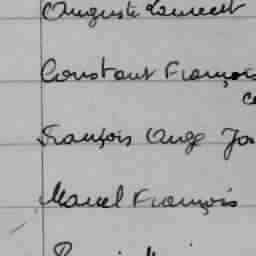 Auguste Laurent
Constant François
François Ange Jos
Marcel François